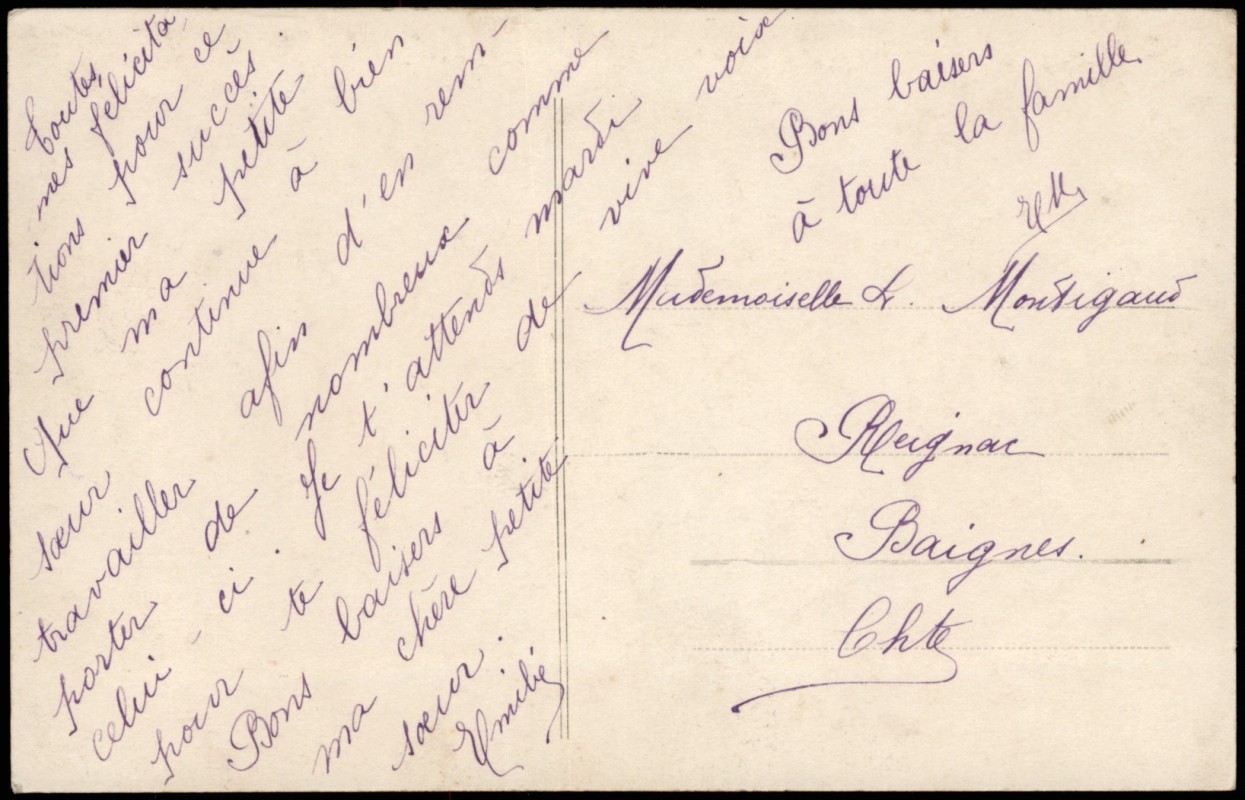 Toutes
mes félicita
tions pour ce
premier succès.
Que ma petite
sœur continue à bien
travailler afin d'en rem-
porter de nombreux comme
celui-ci. Je t'attends mardi
pour te féliciter de vive voix
Bons baisers à
ma chère petite
sœur.
Emilie
Bons baisers
à toute la famille.
EM
Mademoiselle L. Montigaud
Reignac
Baignes.
Chte